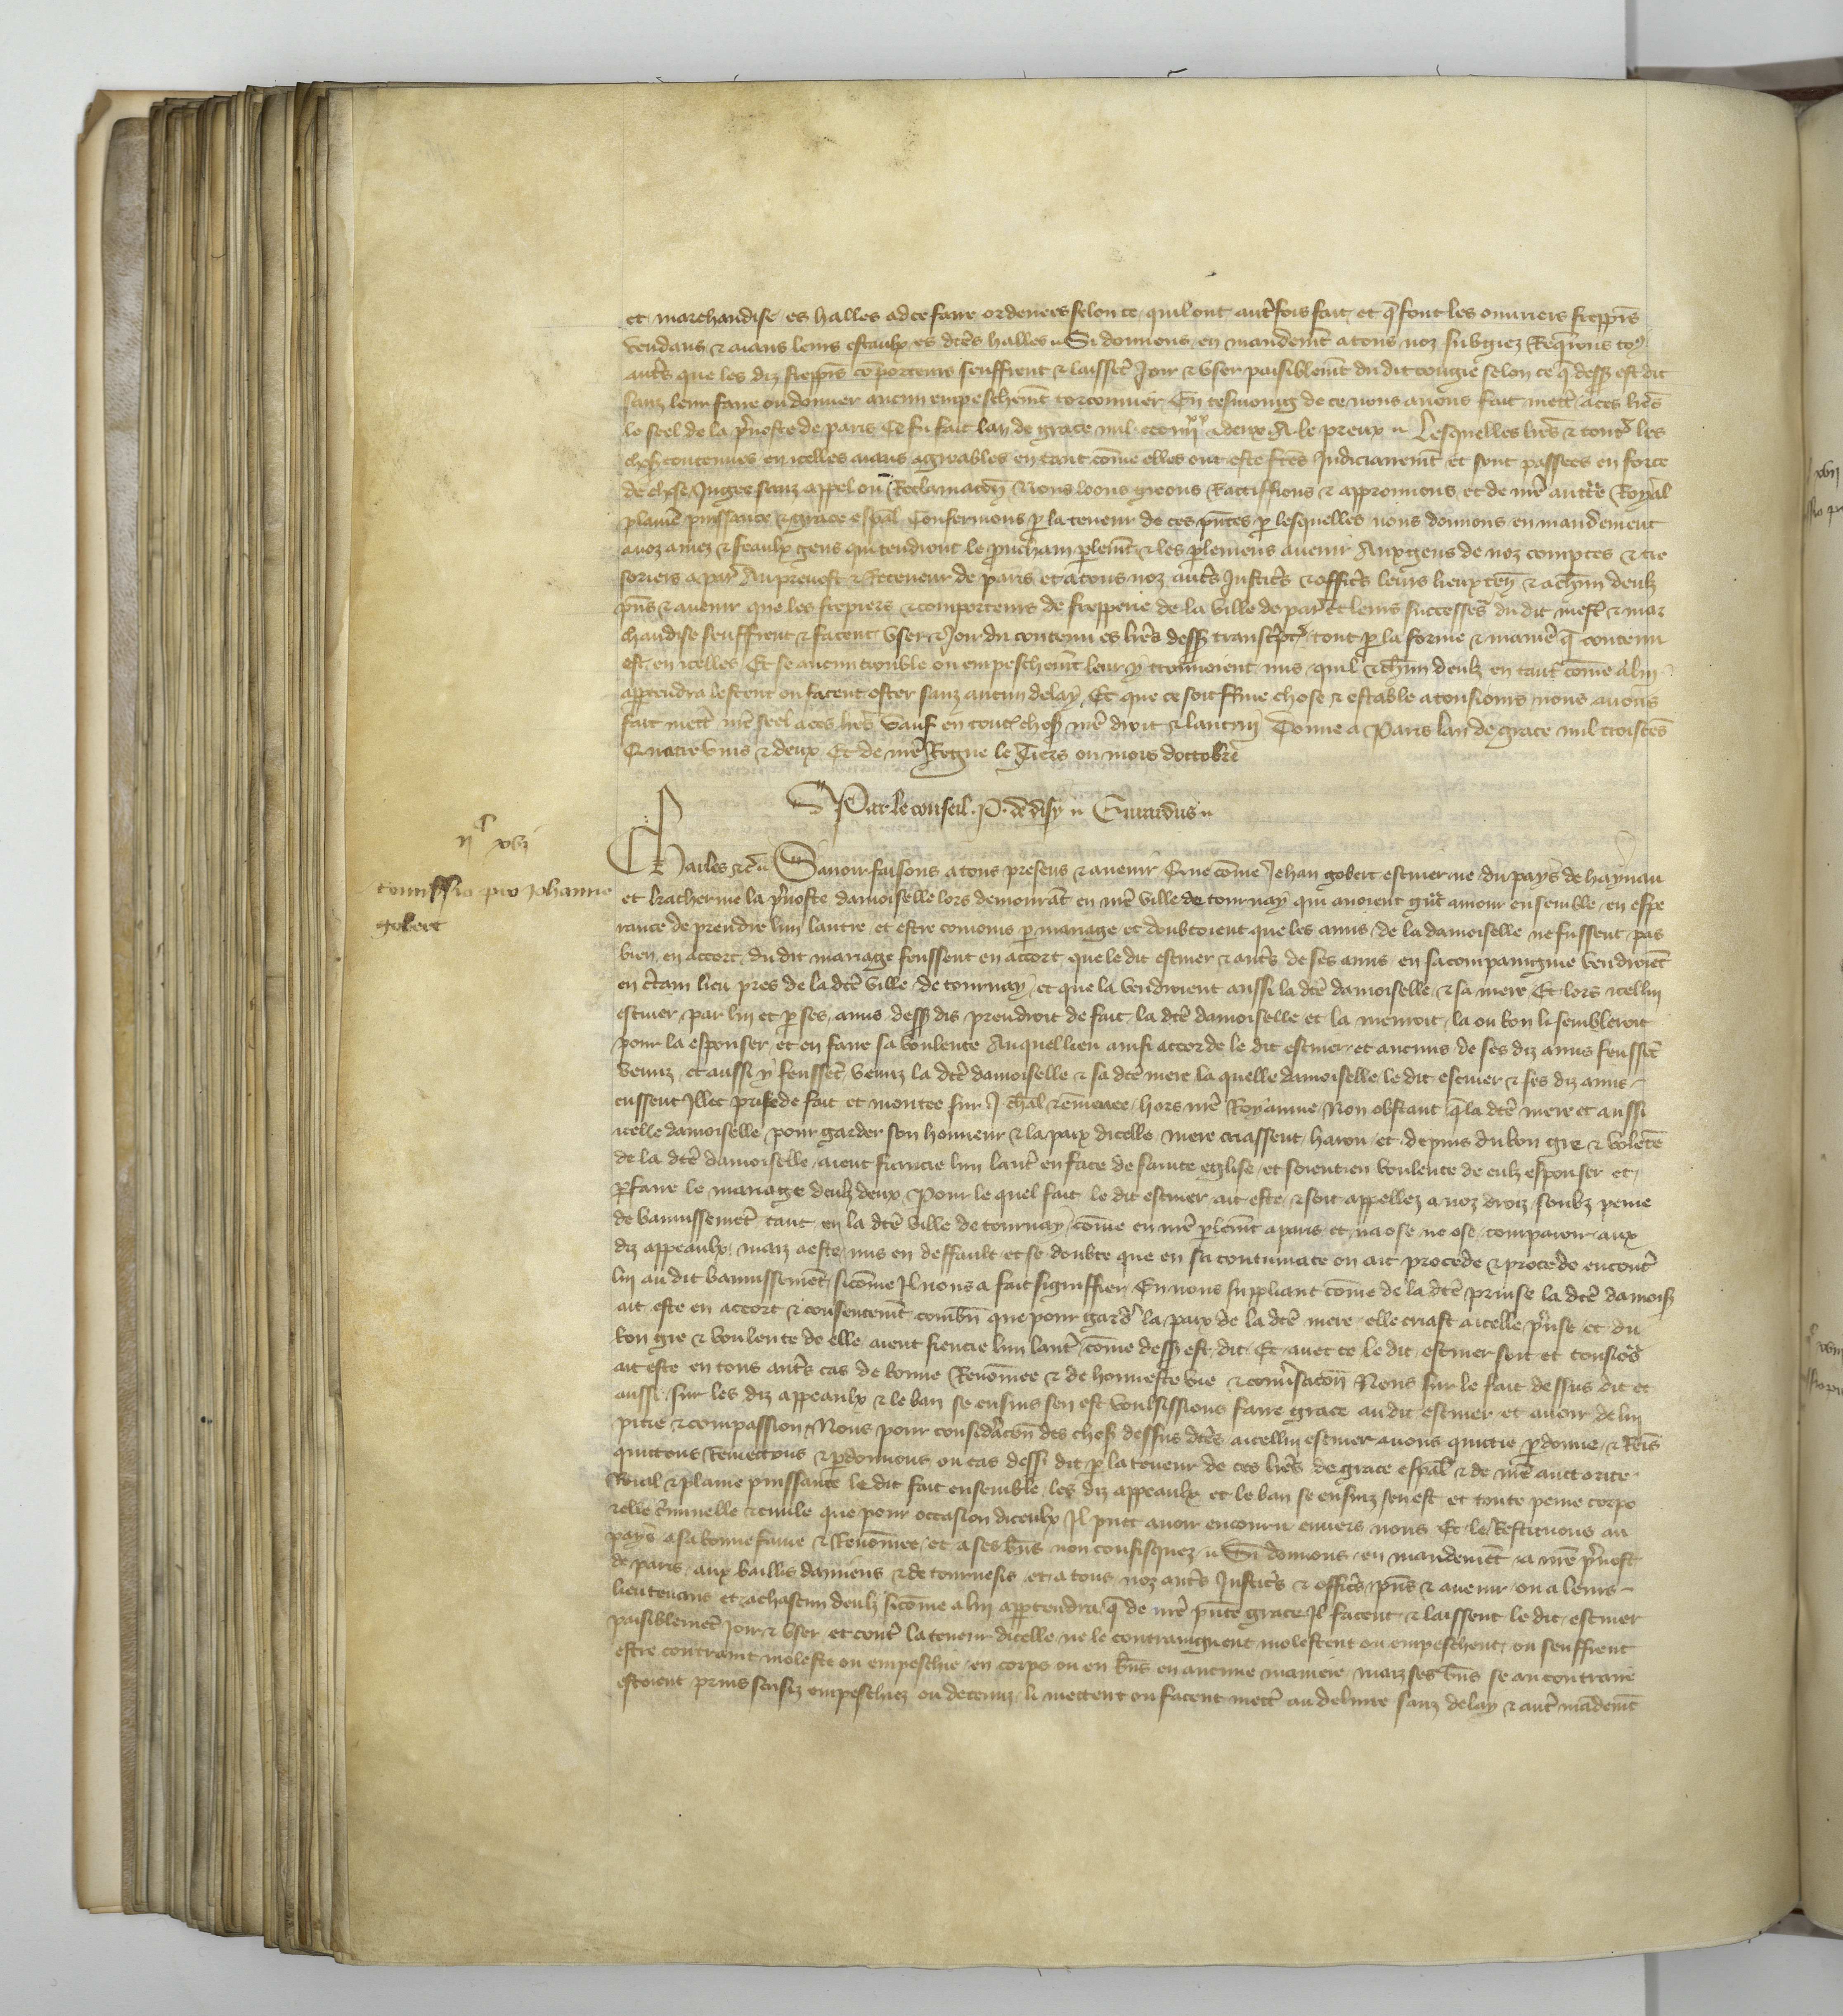 et marchandise es halles ad ce faire ordenees selon ce quil ont autrefois fait et q̃ font les ouvriers freppiers
vendans & aians leurs estaulx es dc̃es halles Si donnons en mandemt a touz noz subgiez Req̃rons toꝰ
auts que les diz freppiers cõporteurs seuffrent & laissent Joir & user paisiblemt du dit congie selon ce q̃ dessꝰ est dit
sanz leur faire ou donner aucun empeschemt torconnier En tesmoing de ce nous avons fait mettre a ces lrẽs
le seel de la p̃voste de paris Ce fu fait lan de grace mil ccc iiiiˣˣ & deux A. le preux Lesquelles lrẽs & toutes les
choses contenues en icelles aians agreables en tant cõme elles ont este fctẽs Judiciairemt et sont passees en force
de chose Jugee sanz appel ou Reclamacõn Nous loons greons Rattiffions & approuvons et de nrẽ auttẽ Royal
plaine puissance & grace espãl Confermons p la teneur de ces pñtes p lesquelles nous donnons en mandement
a noz amez & feaulx gens qui tendront le prochain plemt & les plemens avenir Aux gens de noz comptes & tre
soriers a paris Au prevost & Receveur de paris et a tous noz auts Justicrs & officrs leurs lieux teñ & a chũn deulz
pñs & avenir que les frepiers & comporteurs de frepperie de la ville de paris et leurs successrs du dit mest & mar
chandise seuffrent & facent user & Joir du contenu es lrẽs dessꝰ transcptẽs tout p la forme & manie q̃ contenu
est en icelles Et se aucun trouble ou empeschemt leur y trouvoient mis quil & chũn deulz en tant cõme a lui
appartendra lostent ou facent oster sanz aucun delay Et que ce soit ferme chose & estable a tousiours nous avons
fait mettre nrẽ seel a ces lrẽs Sauf en toutes choses nrẽ droit & lautruy Donne a Paris lan de grace mil troiscens
Quatre vins & deux Et de nrẽ Regne le Tiers ou mois doctobre
Par le conseil. P. de disy Guiardus
iiᶜ xvi
Remissio pro Johanne
gobert
Charles &c̃ Savoir faisons a tous presens & avenir Que cõme Jehan gobert escuier ne du pays de haynau
et katherine la p̃voste damoiselle lors demourãt en nrẽ ville de tournay qui avoient grãt amour ensemble en espe
rance de prendre lun lautre et estre conioins p mariage et doubtoient que les amis de la damoiselle ne fussent pas
bien en accort du dit mariage feussent en accort que le dit escuier & auts de ses amis en sa compaignie vendroient
en ctain lieu pres de la dc̃e ville de tournay et que la vendroient aussi la dc̃e damoiselle & sa mere Et lors icellui
escuier par lui et p ses amis dessꝰ dis prendroit de fait la dc̃e damoiselle et la menroit la ou bon li sembleroit
pour la espouser et en faire sa voulente Auquel lieu ainsi accorde le dit escuier et aucuns de ses diz amis feussent
venuz et aussi y feussent venuz la dc̃e damoiselle & sa dc̃e mere la quelle damoiselle le dit escuier & ses diz amis
eussent Illec prise de fait et montee sur J chãl & em̃enee hors nrẽ Royaume Non obstant q̃ la dc̃e mere et aussi
icelle damoiselle pour garder son honneur & la paix dicelle mere criassent harou et depuis du bon gre & volentẽ
de la dc̃e damoiselle aient fiancie lun lautre en face de sainte eglise et soient en voulente de eulz espouser et
pfaire le mariage deulz deux Pour le quel fait le dit escuier ait este & soit appellez a noz droiz soubz peine
de bannissemẽt tant en la dc̃e ville de tournay cõme en nrẽ plemt a paris et na ose ne ose comparoir aux
diz appeaulx maiz a este mis en deffault et se doubte que en sa contumace on ait procede & procede encontre
lui au dit bannissemẽt sicõme Il nous a fait signiffier En nous suppliant cõme de la dc̃e prinse la dc̃e damoisꝰ
ait este en accort & consentemt combñ que pour garder la paix de la dc̃e mere elle criast a icelle p̃nse et du
bon gre & voulente de elle aient fiencie lun lautre cõme dessꝰ est dit Et avec ce le dit escuier soit et tousiors
ait este en tous auts cas de bonne Renõmee & de honneste vie & conv̾sacõn Nous sur le fait dessus dit et
aussi sur les diz appeaulx & le ban se ensuis sen est voulsissions faire grace au dit escuier et avoir de lui
pitie & compassion Nous pour consid̾acõn des choses dessus dc̃es a icellui escuier avons quittie pdonne & Remis
quittons Remettons & pdonnons ou cas dessꝰ dit p la teneur de ces lrẽs de grace espãl & de nrẽ auctorite
Roial & plaine puissance le dit fait ensemble les diz appeaulx et le ban se ensuiz sen est et toute peine corpo
relle c̾minelle & civile que pour occasion diceulx Il puet avoir encouru envers nous Et le Restituons au
pays a sa bonne fame & Renõmee et a ses bñs non confisquez Si donnons en mandement a nrẽ p̃vost
de paris aux baillis damiens & de tournesis et a tous noz auts Justicrs & officrs pñs & avenir ou a leurs
lieutenans et a chascun deulz sicõme a lui appartendra q̃ de nrẽ pñte grace Il facent & laissent le dit escuier
paisiblemẽt Joir & user et contre la teneur dicelle ne le contraignent molestent ou empeschent ou seuffrent
estre contraint moleste ou empeschie en corps ou en bñs en aucune maniere maiz ses bñs se au contraire
estoient prins saisiz empeschiez ou detenuz li mettent ou facent mettre au delivre sanz delay & autre mãdemt